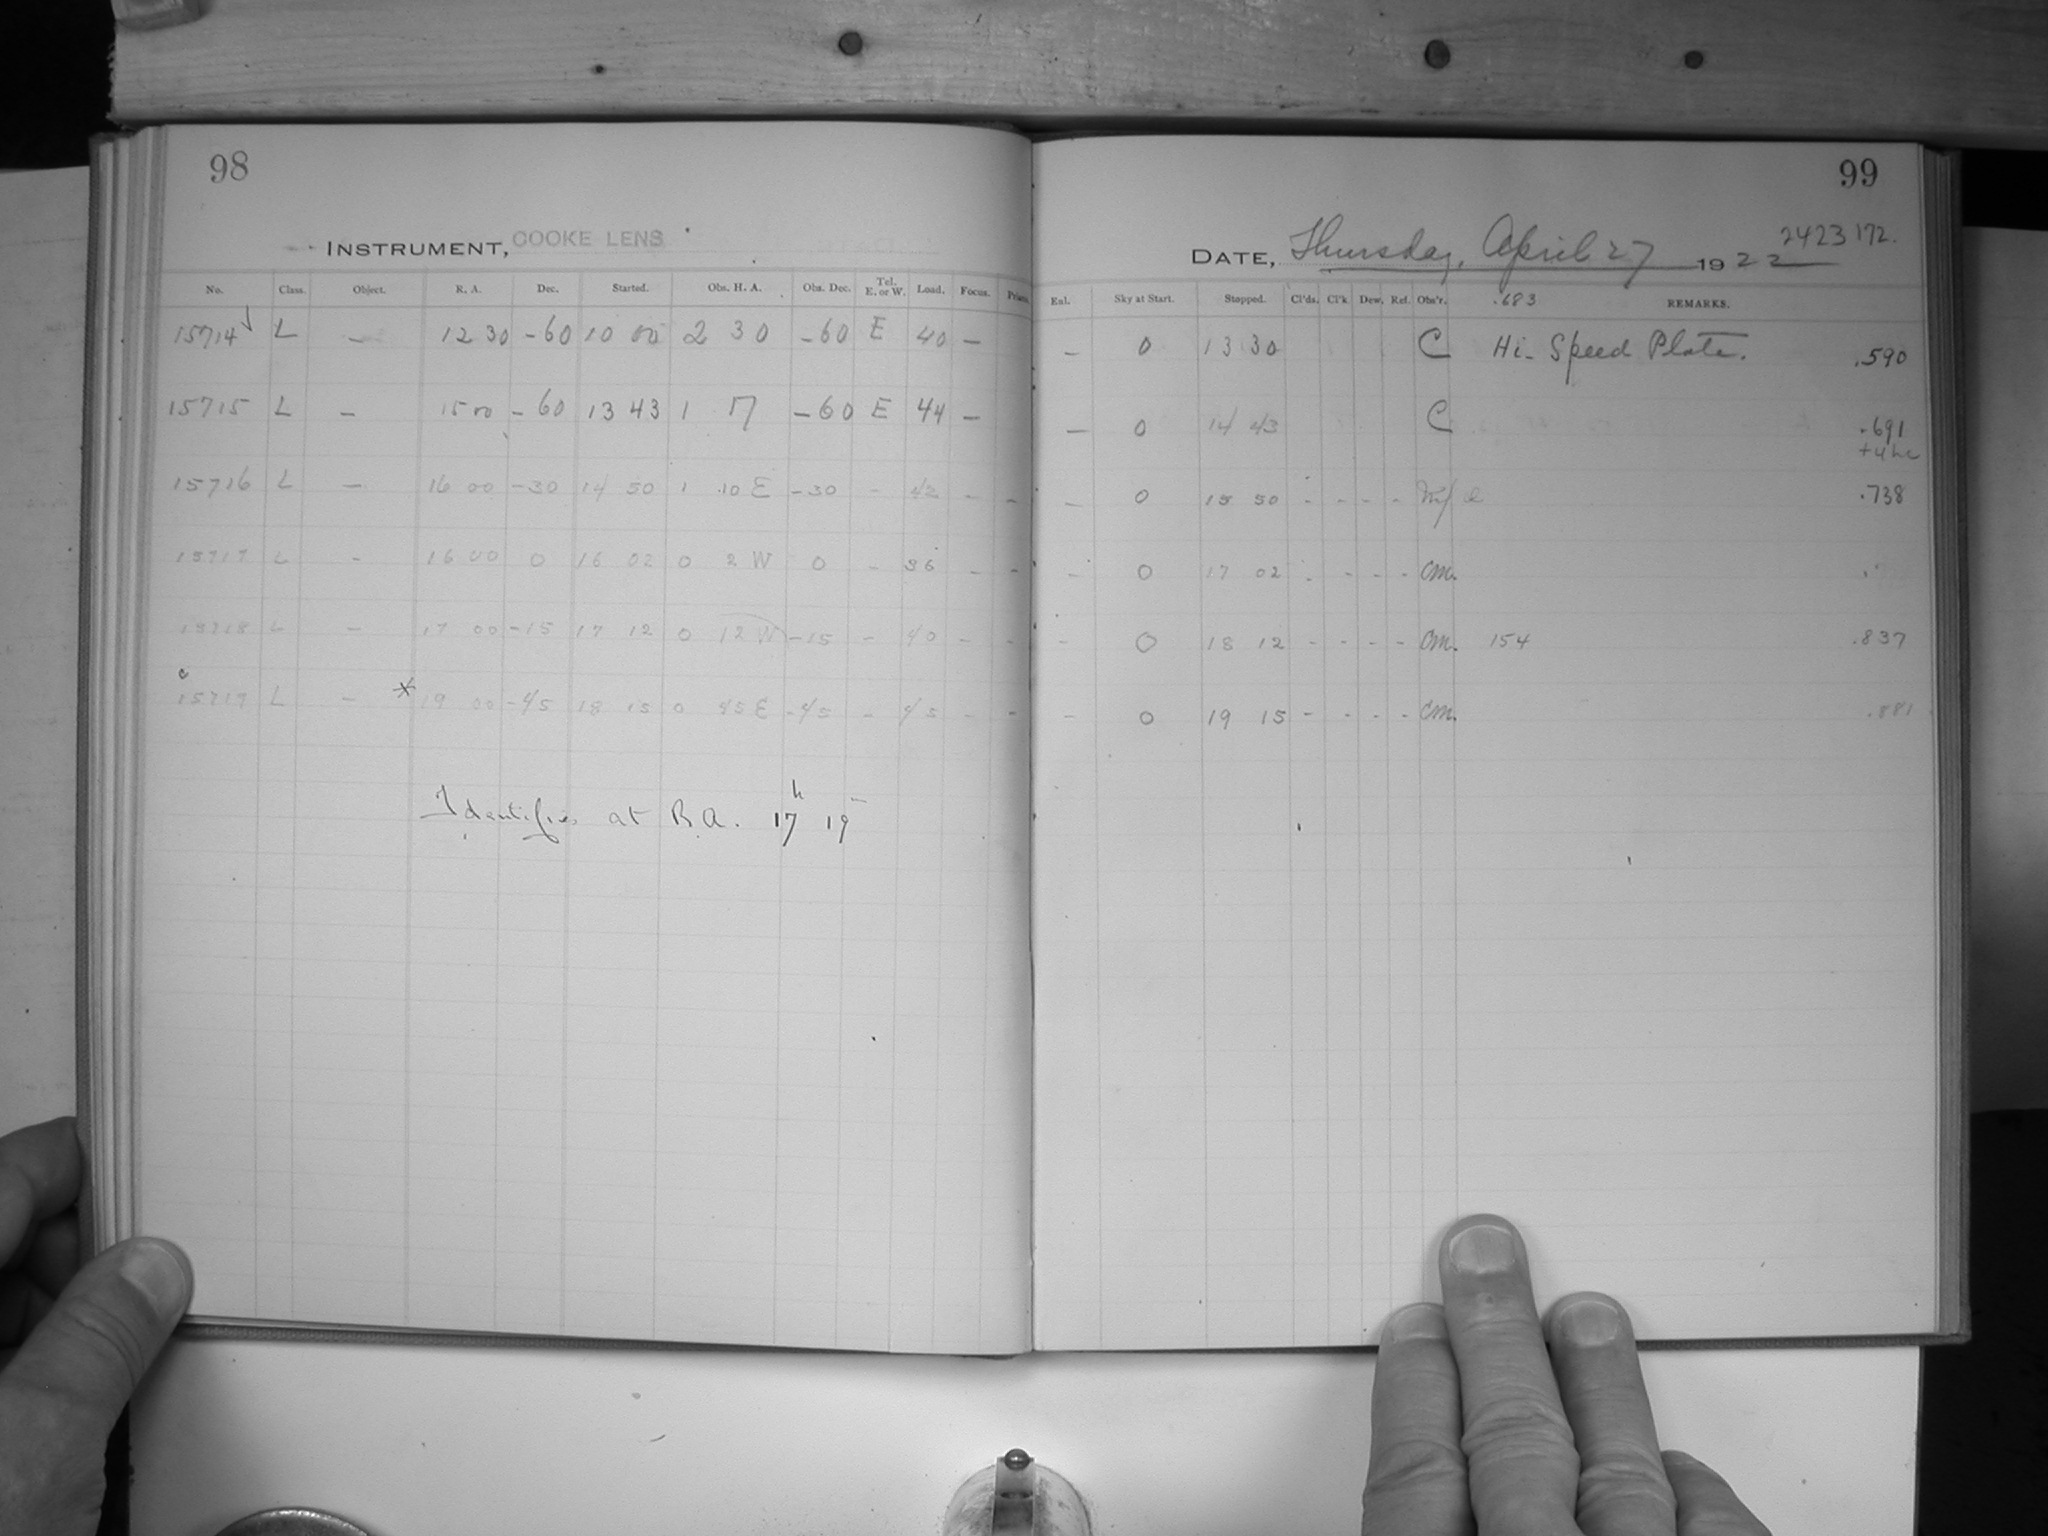 98
INSTRUMENT, COOKE LENS
No. Class. Object. R. A. Dec. Started. Obs. H. A. Obs. Dec. Tel. E. or W. Load. Focus. Prism.
15714 L — 12 30 -60 10 00 2 30 -60 E 40 —
15715 L — 15 00 -60 13 43 1 17 -60 E 44 —
15716 L — 16 00 -30 14 50 1 10 E -30 - 42 - -
15717 L - 16 00 0 16 02 0 2 W 0 - 36 - -
15718 L - 17 00 -15 17 12 0 12 W -15 - 40 - -
15719 L - * 19 00 -45 18 15 0 45 E -45 - 45 - -
Identifies at R.A. 17h 19
99
DATE, Thursday, April 27 1922
2423 172.
Enl. Sky at Start. Stopped. Cl'ds. Cl'k Dew. Ref. Obs'r. .683 REMARKS.
— 0 13 30 C Hi-Speed Plate. .590
— 0 14 43 C .691
— 0 15 50 - - - - .738
- 0 17 02 - - - - CM.
- 0 18 12 - - - - CM. 154 .837
- 0 19 15 - - - - CM. .881